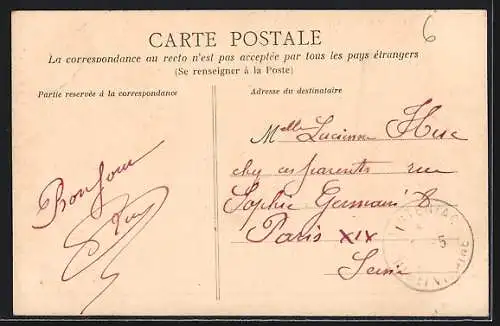 6
CARTE POSTALE
La correspondance au recto n'est pas acceptée par tous les pays étrangers
(Se renseigner à la Poste)
Partie reservée à la correspondance
Adresse du destinataire
Bonjour
Melle Lucienne Hue
chez ses parents rue
Sophie Germain 8
Paris XIX
Seine
5